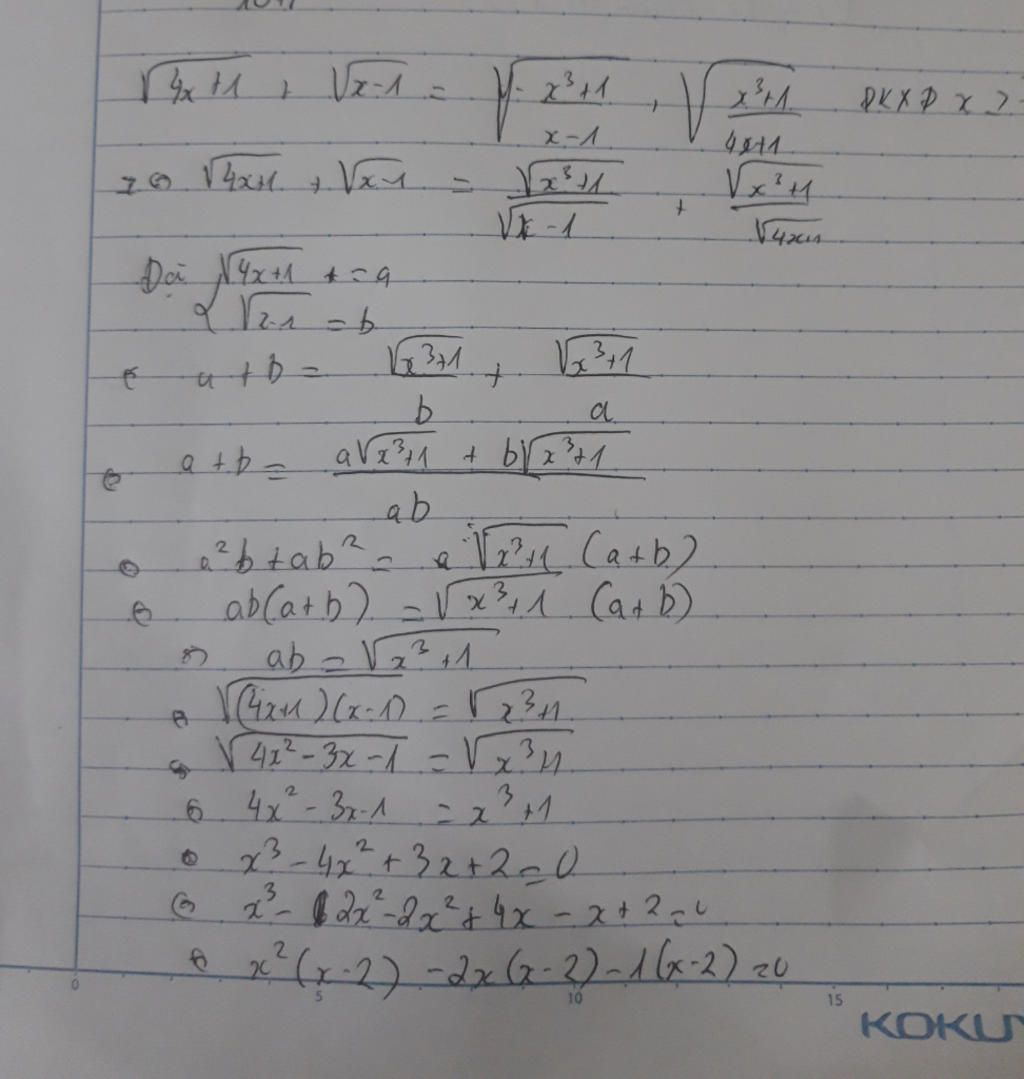 √(4x+1) + √(x-1) = √((x³+1)/(x-1)) + √((x³+1)/(4x+1)) ĐKXĐ x >
⇔ √(4x+1) + √(x-1) = √(x³+1)/√(x-1) + √(x³+1)/√(4x+1)
√(4x+1) = a
= b
a + b = √(x³+1)/b + √(x³+1)/a
⇔ a + b = (a√(x³+1) + b√(x³+1))/ab
⇔ a²b + ab² = √(x³+1) (a+b)
⇔ ab(a+b) = √(x³+1) (a+b)
⇔ ab = √(x³+1)
⇔ √((4x+1)(x-1)) = √(x³+1)
⇔ √(4x²-3x-1) = √(x³+1)
⇔ 4x² - 3x - 1 = x³+1
⇔ x³ - 4x² + 3x + 2 = 0
⇔ x³ - 2x² - 2x² + 4x - x + 2 = 0
⇔ x²(x-2) - 2x(x-2) - 1(x-2) = 0
0 5 10 15